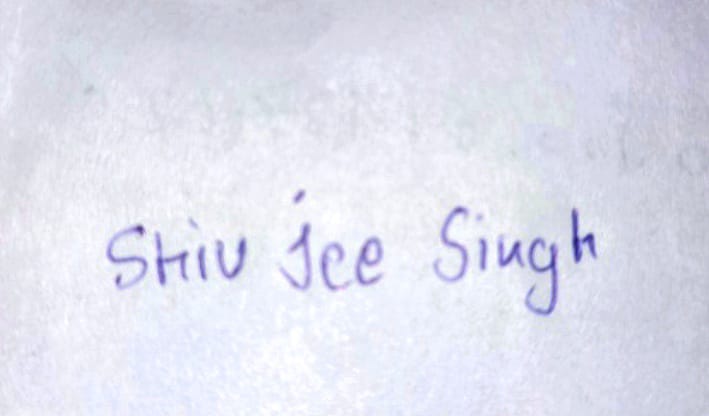 Shiv Jee Singh